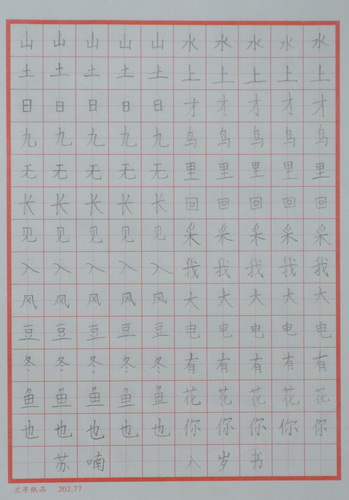 山山山山山水水水水水
土土土土土上上上上上
日日日日日才才才才才
九九九九九鸟鸟鸟鸟鸟
无无无无无里里里里里
长长长长长回回回回回
见见见见见采采采采采
入入入入入我我我我我
风风风风风大大大大大
豆豆豆豆豆电电电电电
冬冬冬冬冬有有有有有
鱼鱼鱼鱼鱼花花花花花
也也也也也你你你你你
苏喃 八岁书
兰亭纸品 202.77